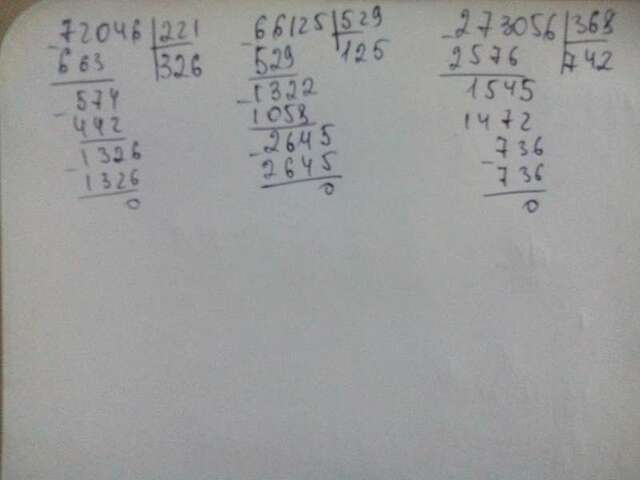 -72046 |221
663 |326
-574
442
-1326
1326
0
-66125 |529
529 125
-1322
1058
-2645
2645
0
-273056 |368
2576 |742
1545
1472
-736
-736
0